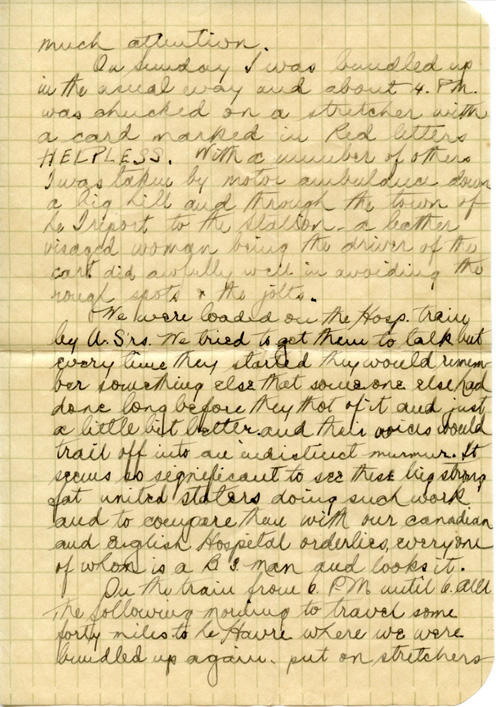 much attention.
On Sunday I was bundled up
in the usual way and about 4. P.M.
was chucked on a stretcher with
a card marked in Red letters
HELPLESS. With a number of others
I was taken by motor ambulance down
a big hill and through the town of
Le Treport to the station - a leather
visaged woman being the driver of the
cart did awfully well in avoiding the
rough spots & the jolts.
We were loaded on the Hosp. train
by U.S'rs. We tried to get them to talk but
every time they started they would remem-
ber something else that someone else had
done long before they thot of it and just
a little bit better and their voices would
trail off into an indistinct murmur. It
seems so significant to see these big strong
fat united staters doing such work
and to compare them with our canadian
and english Hospital orderlies, everyone
of whom is a B 3. man and looks it.
On the train from 6. P.M until 6. AM
The following morning to travel some
forty miles to Le Havre where we were
bundled up again. put on stretchers